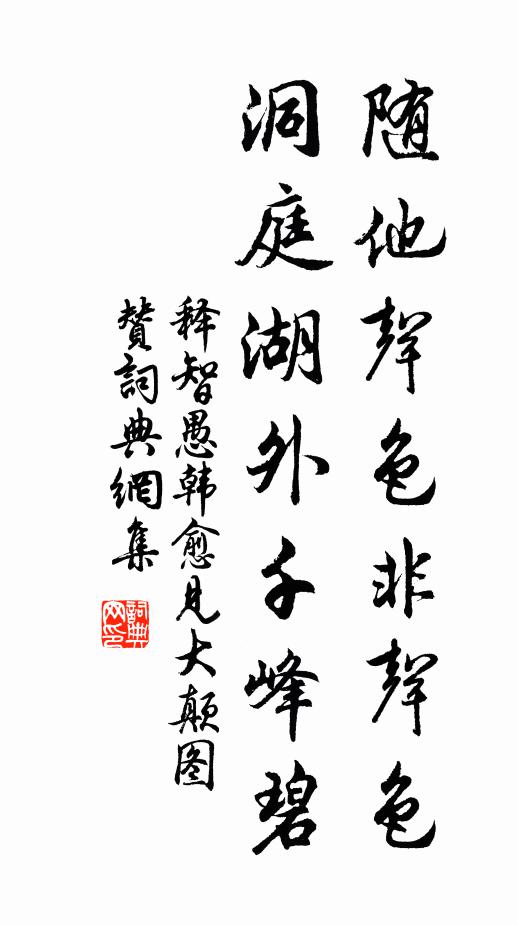 随他聲色非聲色
洞庭湖外千峰碧
释智愚韩愈见大颠图
赞詞典網集
詞典
网印